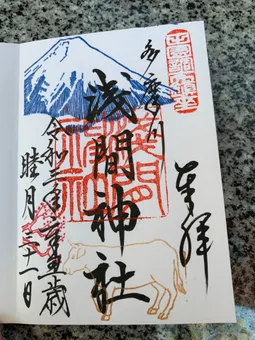 奉拝
多摩川
浅間神社
令和三年辛丑歳
睦月三十一日
浅間
神社